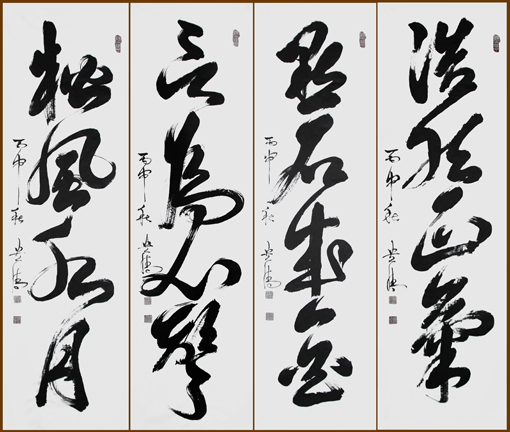 浩然正氣
丙申秋
點石成金
丙申秋
言為心聲
丙申秋
松風水月
丙申秋